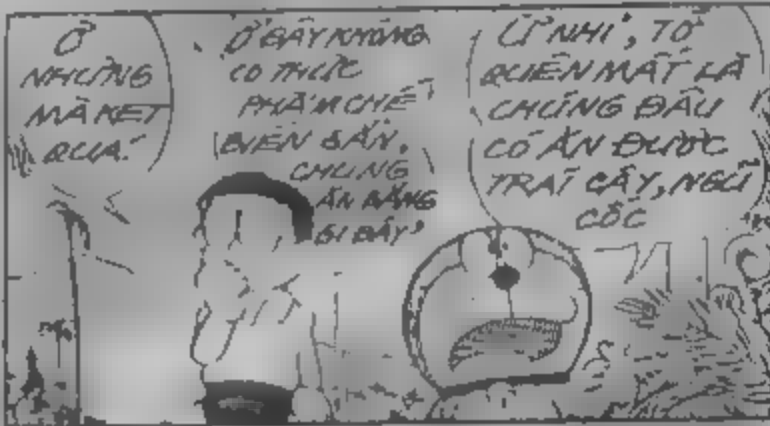 Ơ
NHƯNG
MÀ KET
QUẢ.
Ở ĐÂY KHÔNG
CO THỨC
PHẨM CHẾ
BIẾN SẴN,
CHÚNG
ĂN BẰNG
GÌ ĐÂY
Ừ NHỈ, TỚ
QUÊN MẤT LÀ
CHÚNG ĐÂU
CÓ ĂN ĐƯỢC
TRÁI CÂY, NGŨ
CỐC